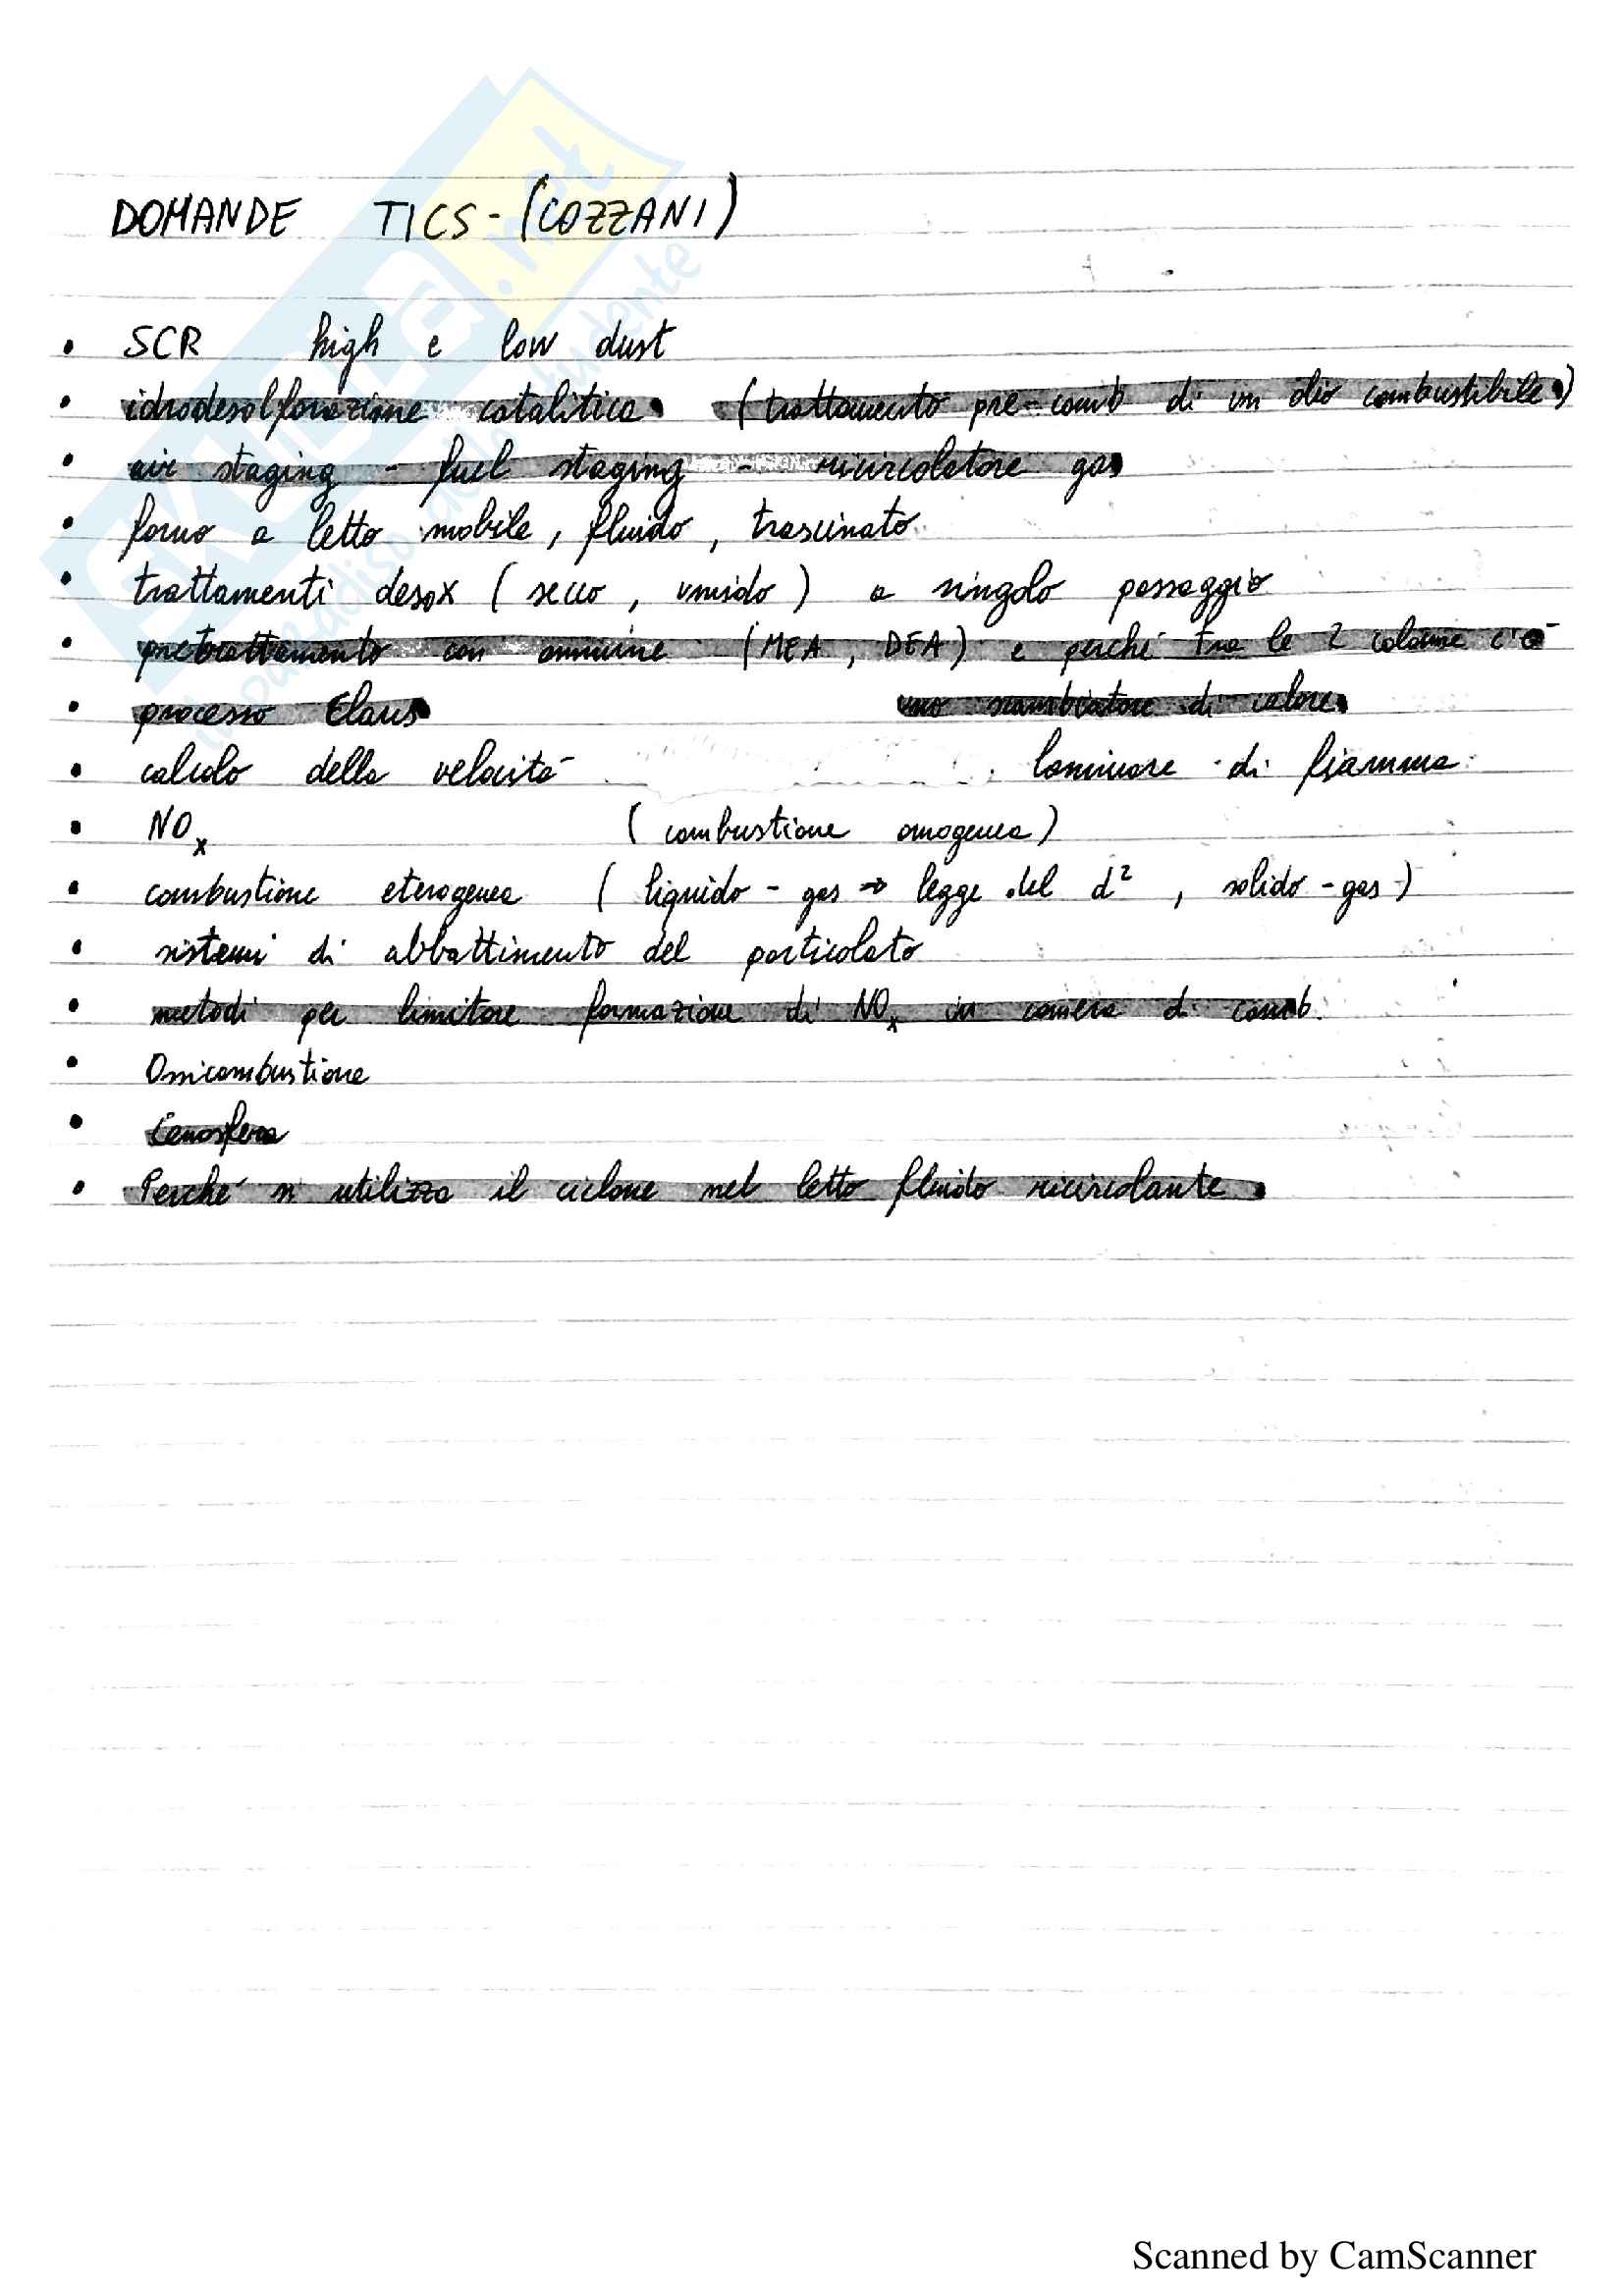 DOMANDE TICS - (COZZANI)
• SCR high e low dust
• idrodesolforazione catalitica (trattamento pre-comb di un olio combustibile)
• air staging - fuel staging - ricircolatore gas
• forno a letto mobile, fluido, trascinato
• trattamenti desox (secco, umido) a singolo passaggio
• pretrattamento con ammine (MEA, DEA) e perché tra le 2 colonne c'è
• processo Claus uno scambiatore di calore
• calcolo della velocità laminare di fiamma
• NOx (combustione omogenea)
• combustione eterogenea (liquido - gas → legge del d², solido - gas)
• sistemi di abbattimento del particolato
• metodi per limitare formazione di NOx in camera di comb.
• Ossicombustione
• Cenosfera
• Perché si utilizza il ciclone nel letto fluido ricircolante
SKUOLA.net
il paradiso dello studente
Scanned by CamScanner